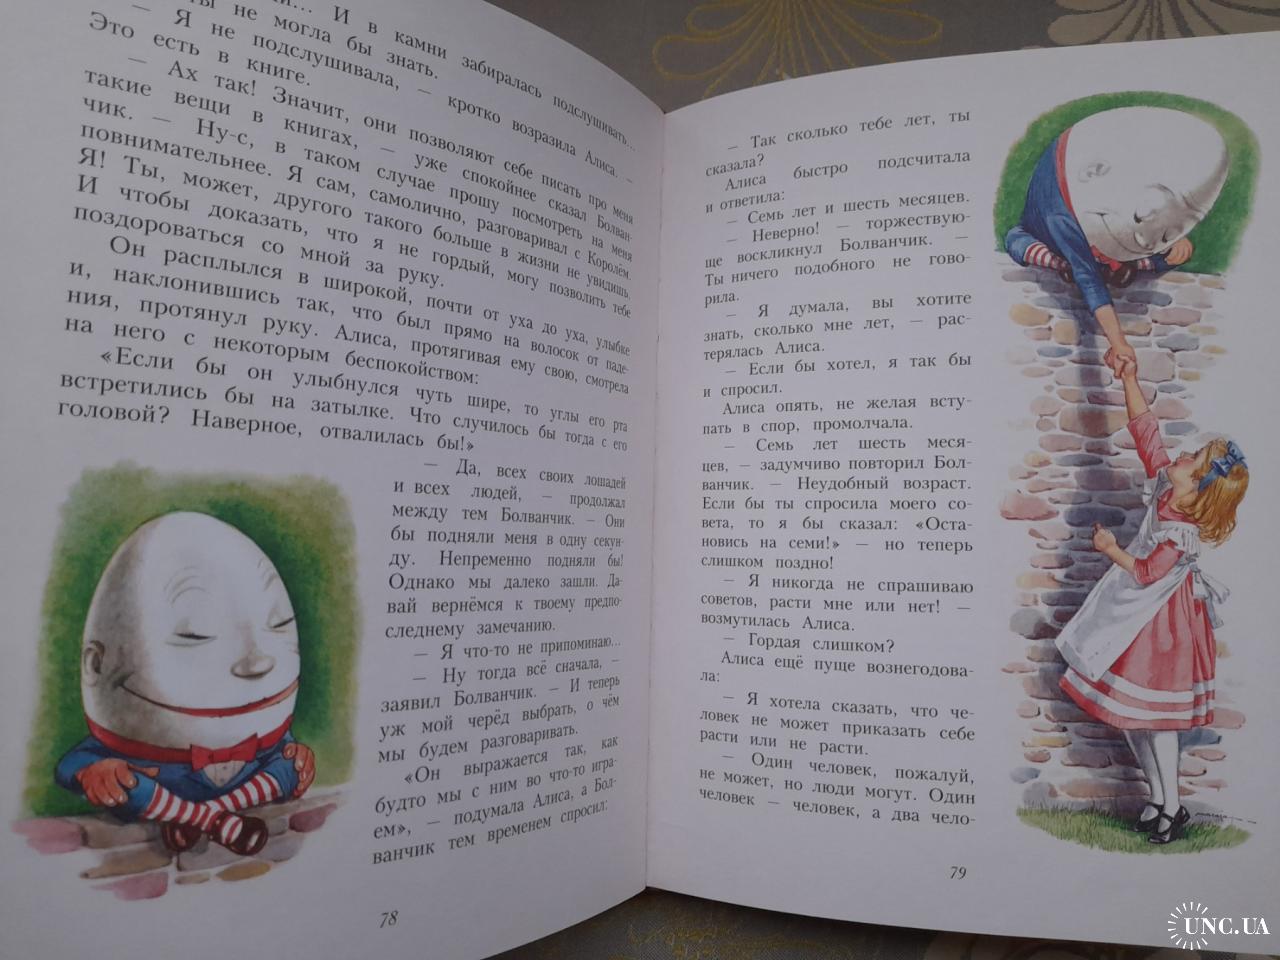 И в камни забиралась подслушивать...
ты не могла бы знать.
— Я не подслушивала, — кротко возразила Алиса. —
Это есть в книге.
— Ах так! Значит, они позволяют себе писать про меня
такие вещи в книгах, — уже спокойнее сказал Болван-
чик. — Ну-с, в таком случае прошу посмотреть на меня
повнимательнее. Я сам, самолично, разговаривал с Королём.
Я! Ты, может, другого такого больше в жизни не увидишь.
И чтобы доказать, что я не гордый, могу позволить тебе
поздороваться со мной за руку.
Он расплылся в широкой, почти от уха до уха, улыбке
и, наклонившись так, что был прямо на волосок от паде-
ния, протянул руку. Алиса, протягивая ему свою, смотрела
на него с некоторым беспокойством:
«Если бы он улыбнулся чуть шире, то углы его рта
встретились бы на затылке. Что случилось бы тогда с его
головой? Наверное, отвалилась бы!»
— Да, всех своих лошадей
и всех людей, — продолжал
между тем Болванчик. — Они
бы подняли меня в одну секун-
ду. Непременно подняли бы!
Однако мы далеко зашли. Да-
вай вернёмся к твоему предпо-
следнему замечанию.
— Я что-то не припоминаю...
— Ну тогда всё сначала, —
заявил Болванчик. — И теперь
уж мой черёд выбрать, о чём
мы будем разговаривать.
«Он выражается так, как
будто мы с ним во что-то игра-
ем», — подумала Алиса, а Бол-
ванчик тем временем спросил:
78
— Так сколько тебе лет, ты
сказала?
Алиса быстро подсчитала
и ответила:
— Семь лет и шесть месяцев.
— Неверно! — торжествую-
ще воскликнул Болванчик. —
Ты ничего подобного не гово-
рила.
— Я думала, вы хотите
знать, сколько мне лет, — рас-
терялась Алиса.
— Если бы хотел, я так бы
и спросил.
Алиса опять, не желая всту-
пать в спор, промолчала.
— Семь лет шесть меся-
цев, — задумчиво повторил Бол-
ванчик. — Неудобный возраст.
Если бы ты спросила моего со-
вета, то я бы сказал: «Оста-
новись на семи!» — но теперь
слишком поздно!
— Я никогда не спрашиваю
советов, расти мне или нет! —
возмутилась Алиса.
— Гордая слишком?
Алиса ещё пуще вознегодова-
ла:
— Я хотела сказать, что че-
ловек не может приказать себе
расти или не расти.
— Один человек, пожалуй,
не может, но люди могут. Один
человек — человек, а два чело-
79
UNC.UA